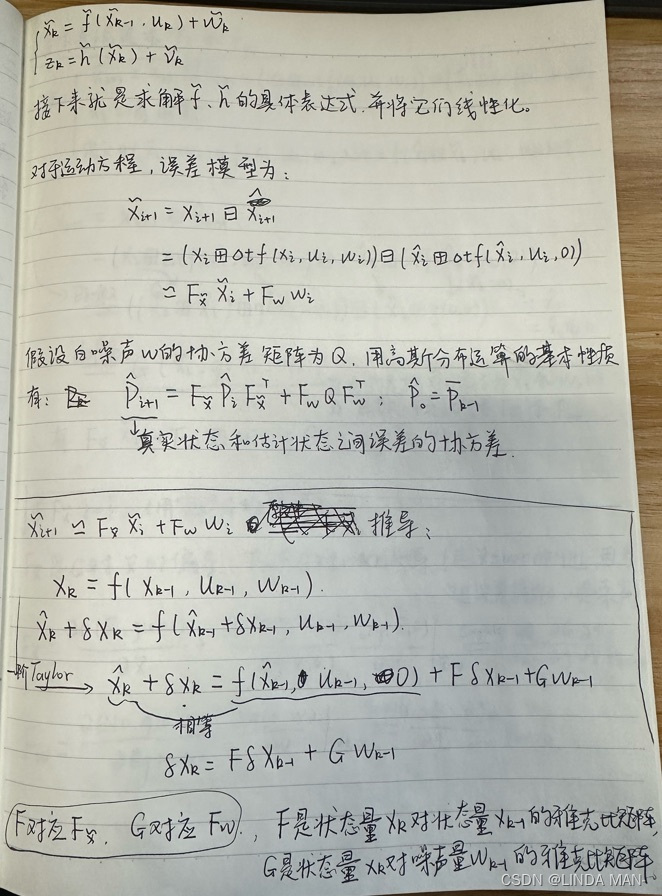 x̃ₖ = f̃(x̃ₖ₋₁, uₖ) + w̃ₖ
zₖ = h̃(x̃ₖ) + ṽₖ
接下来就是求解 f̃、h̃ 的具体表达式,并将它们线性化。
对于运动方程,误差模型为:
x̃ᵢ₊₁ = xᵢ₊₁ ⊟ x̂ᵢ₊₁
= (xᵢ ⊞ Δt f(xᵢ, uᵢ, wᵢ)) ⊟ (x̂ᵢ ⊞ Δt f(x̂ᵢ, uᵢ, 0))
≃ Fx̃ x̃ᵢ + Fw wᵢ
假设白噪声w的协方差矩阵为Q,用高斯分布运算的基本性质
有: P̂ᵢ₊₁ = Fx̃ P̂ᵢ Fx̃ᵀ + Fw Q Fwᵀ ; P̂₀ = P̄ₖ₋₁
↓真实状态和估计状态之间误差的协方差.
x̃ᵢ₊₁ ≃ Fx̃ x̃ᵢ + Fw wᵢ 推导:
xₖ = f(xₖ₋₁, uₖ₋₁, wₖ₋₁).
x̂ₖ + δxₖ = f(x̂ₖ₋₁ + δxₖ₋₁, uₖ₋₁, wₖ₋₁).
一阶Taylor → x̂ₖ + δxₖ = f(x̂ₖ₋₁, uₖ₋₁, 0) + Fδxₖ₋₁ + Gwₖ₋₁
相等
δxₖ = Fδxₖ₋₁ + Gwₖ₋₁
F对应Fx̃, G对应Fw, F是状态量xₖ对状态量xₖ₋₁的雅克比矩阵,
G是状态量xₖ对噪声量wₖ₋₁的雅克比矩阵.
CSDN @LINDA MAN